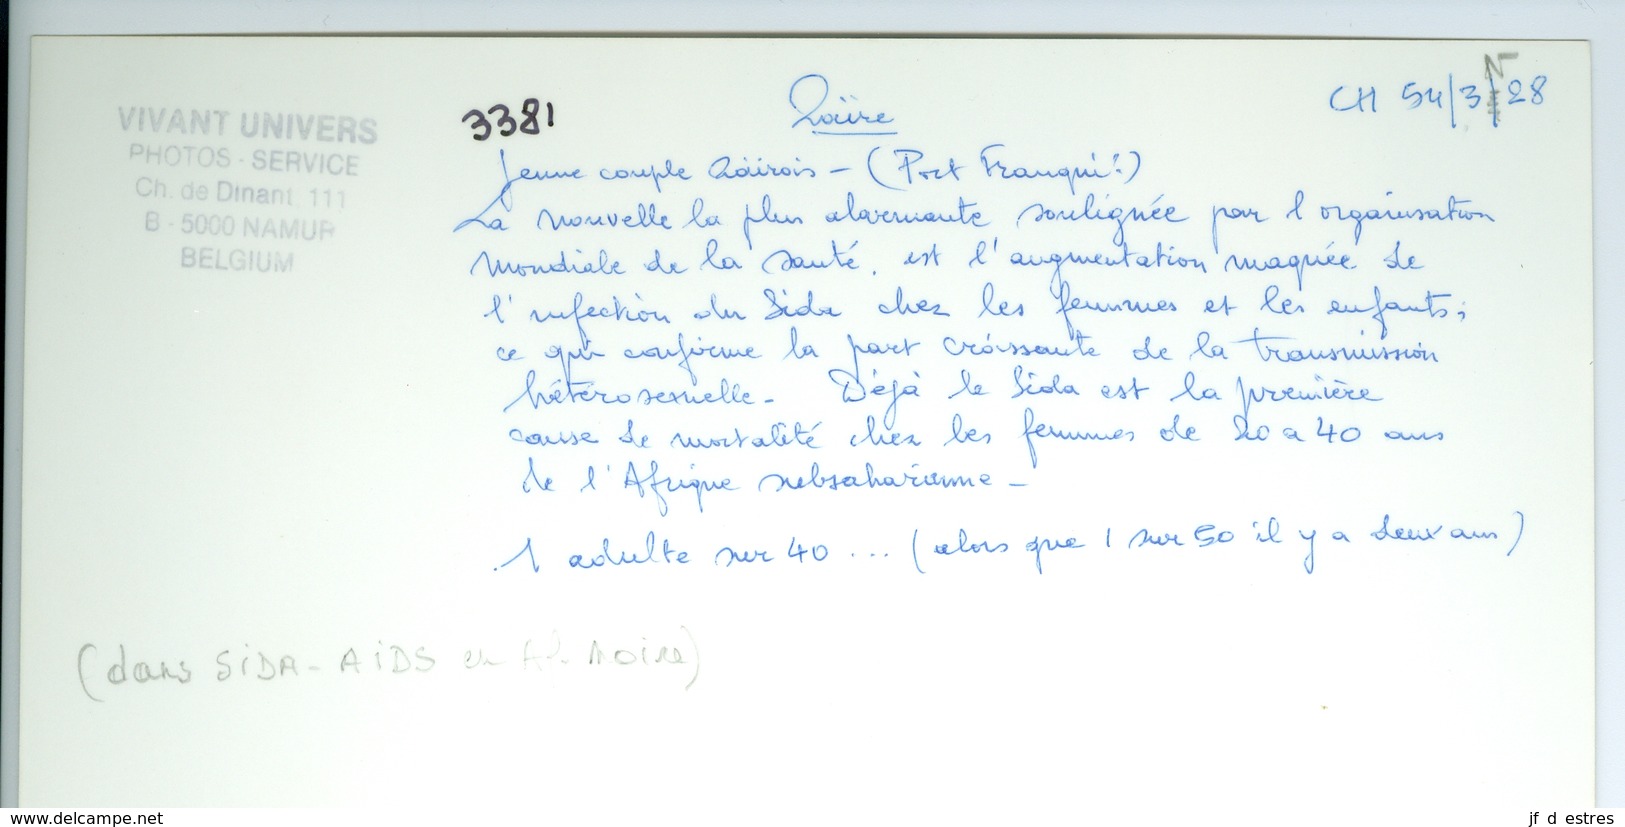 VIVANT UNIVERS
PHOTOS - SERVICE
Ch. de Dinant, 111
B - 5000 NAMUR
BELGIUM
3381
Zaïre
CH 54/3/28
N
Jeune couple Zaïrois - (Port Franqui?)
La nouvelle la plus alarmante soulignée par l'organisation
Mondiale de la santé, est l'augmentation maquée de
l'infection du Sida chez les femmes et les enfants;
ce qui confirme la part croissante de la transmission
hétérosexuelle - Déjà le Sida est la première
cause de mortalité chez les femmes de 20 à 40 ans
de l'Afrique subsaharienne -
1 adulte sur 40 ... (alors que 1 sur 50 il y a deux ans)
(dans SiDA - AiDS en Af. Noire)
www.delcampe.net
jf d estres